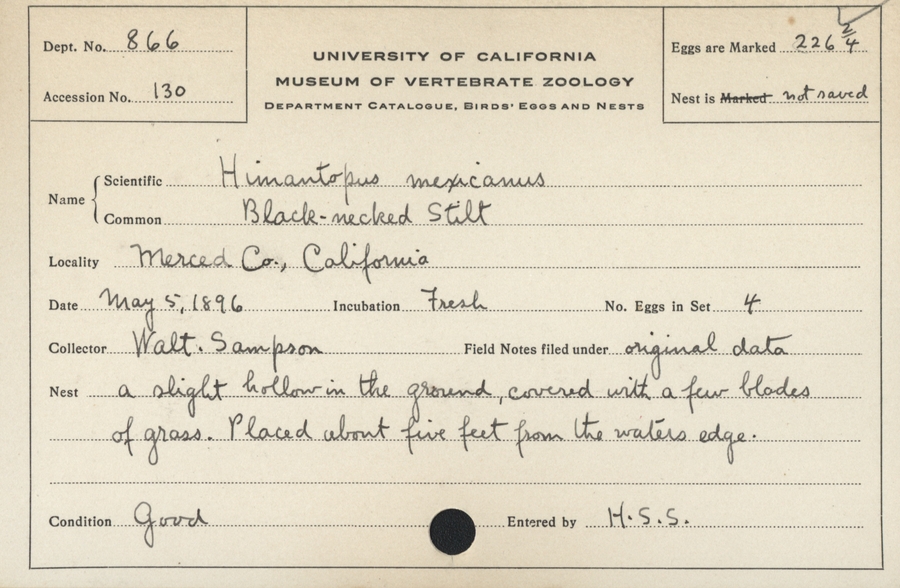 Dept. No. 866
Accession No. 130
UNIVERSITY OF CALIFORNIA
MUSEUM OF VERTEBRATE ZOOLOGY
DEPARTMENT CATALOGUE, BIRDS' EGGS AND NESTS
Eggs are Marked 226 2/4
Nest is Marked not saved
Name
Scientific Himantopus mexicanus
Common Black-necked Stilt
Locality Merced Co., California
Date May 5, 1896 Incubation Fresh No. Eggs in Set 4
Collector Walt. Sampson Field Notes filed under original data
Nest a slight hollow in the ground, covered with a few blades
of grass. Placed about five feet from the waters edge.
Condition Good Entered by H.S.S.